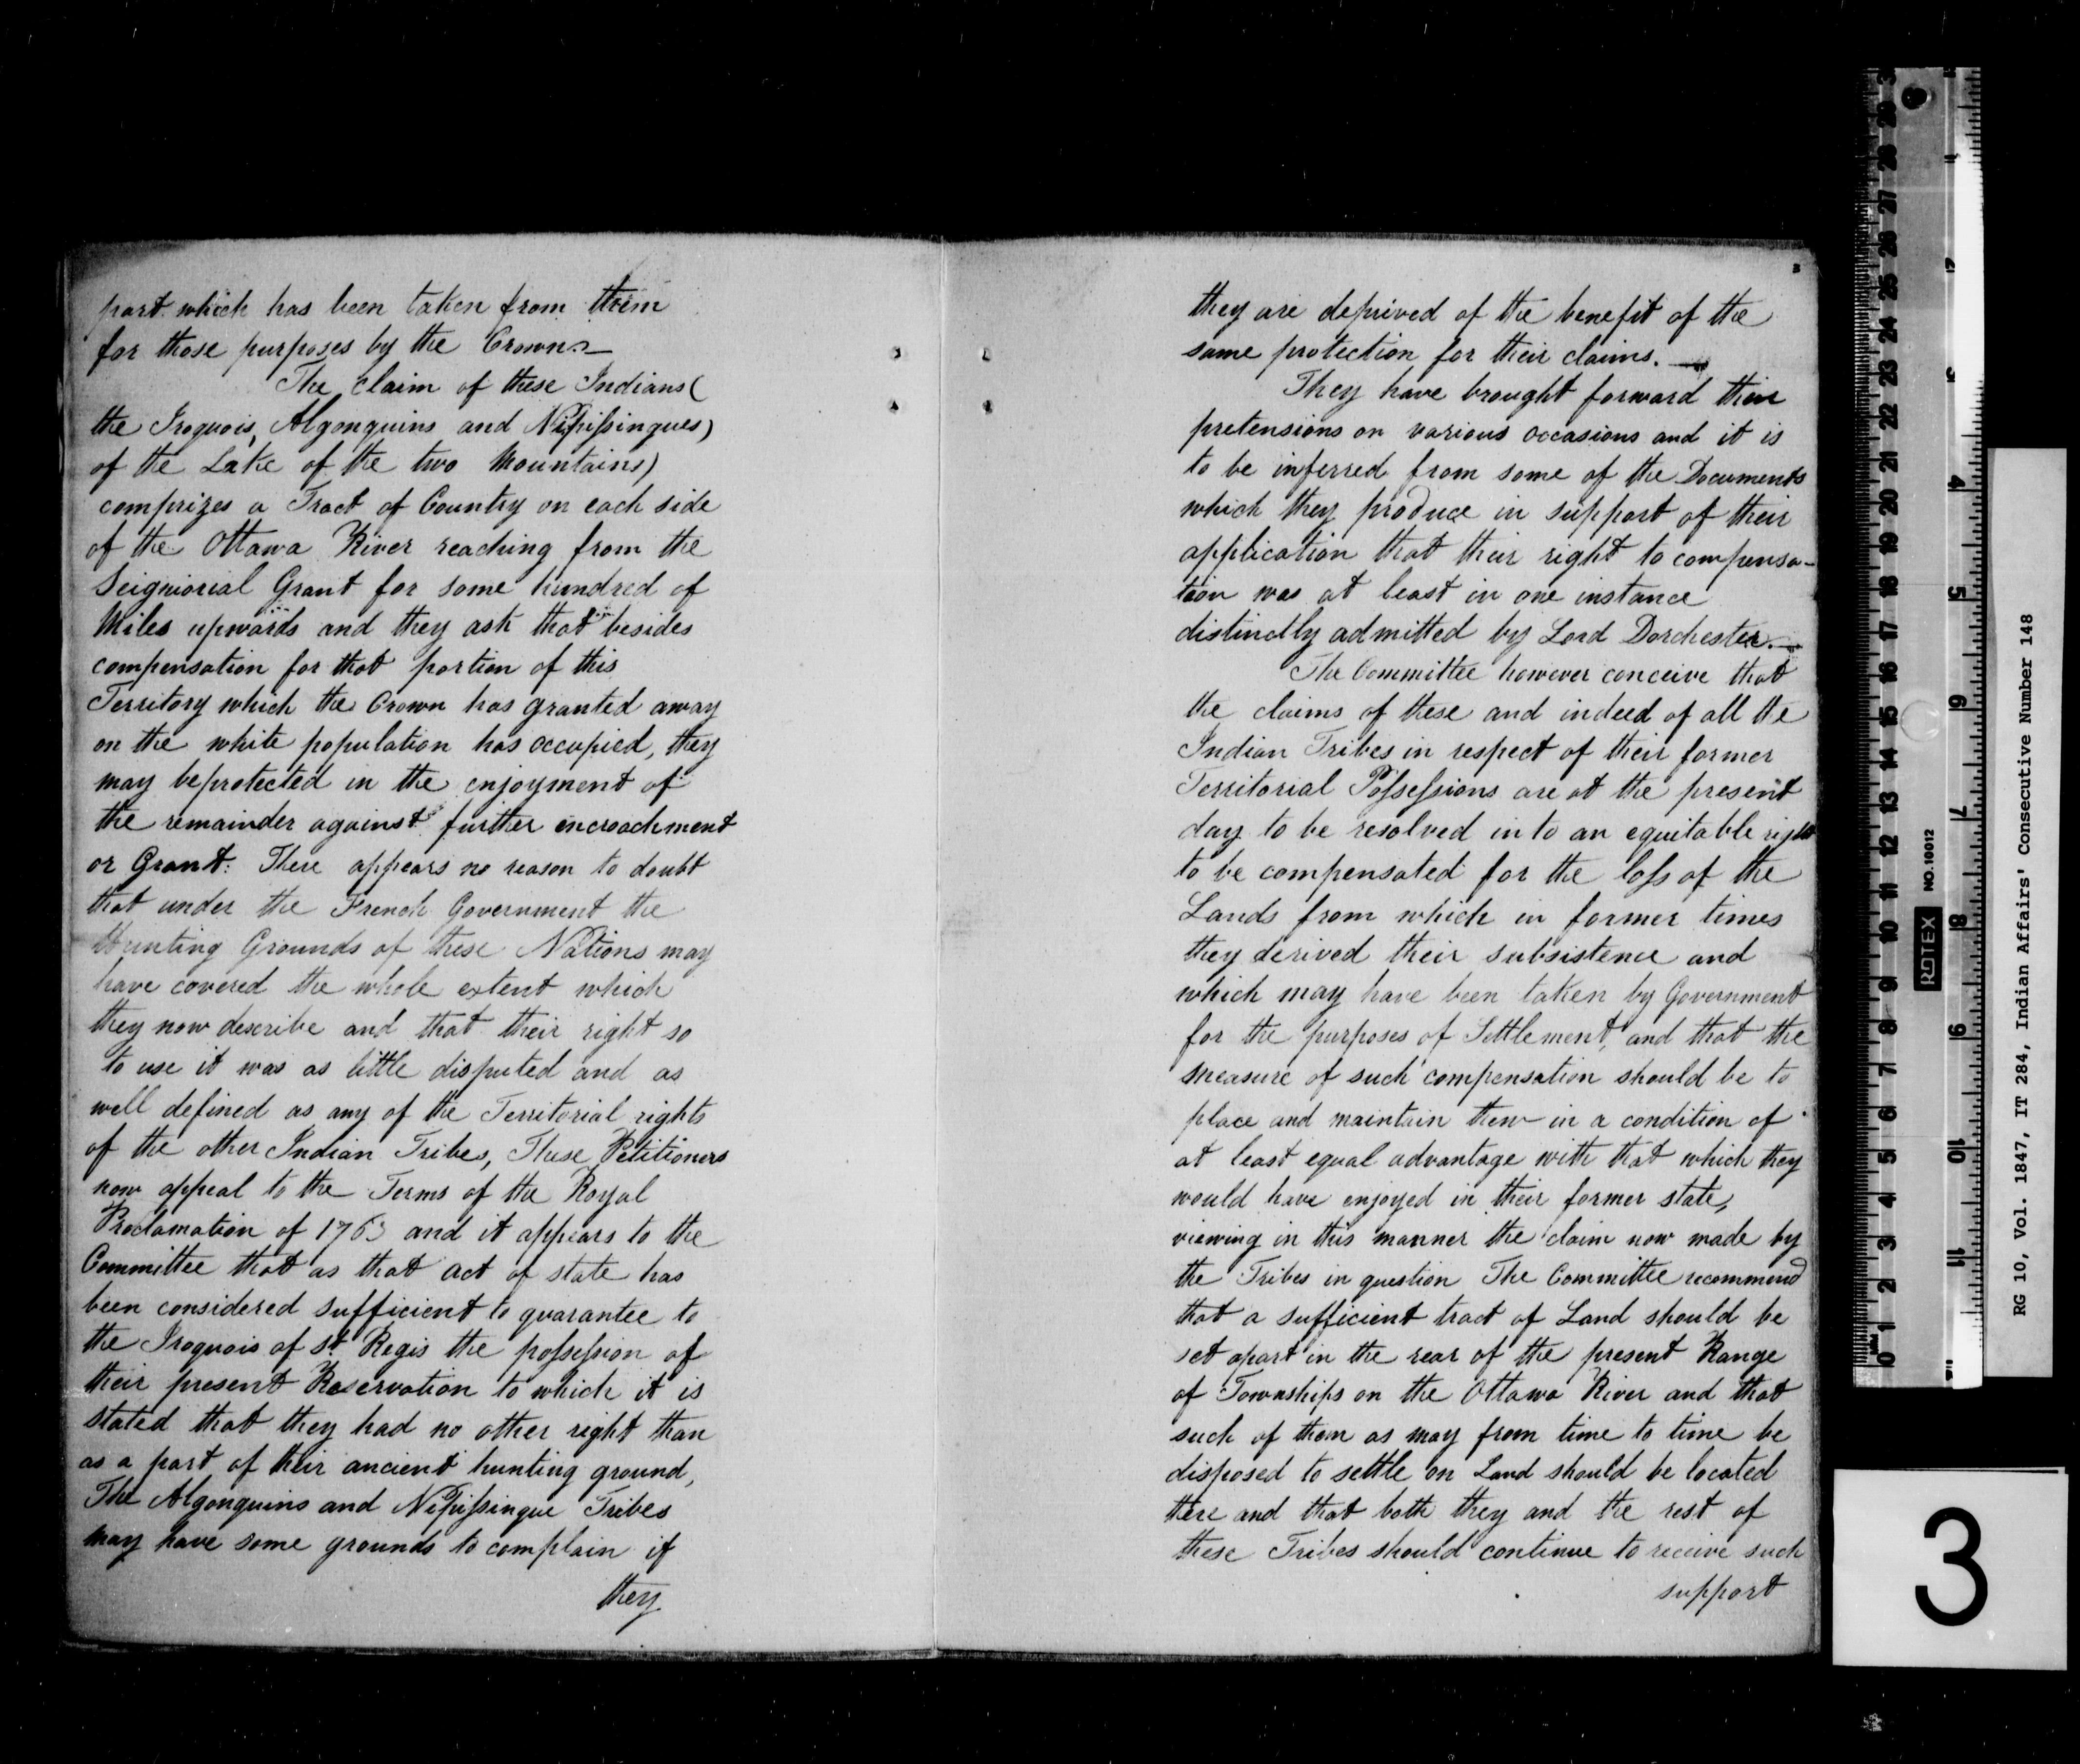 part which has been taken from them
for those purposes by the Crown.—
The claim of these Indians (
the Iroquois, Algonquins and Nipissingues)
of the Lake of the two Mountains)
comprizes a Tract of Country on each side
of the Ottawa River reaching from the
Seigniorial Grant for some hundred of
Miles upwards and they ask that besides
compensation for that portion of this
Territory which the Crown has granted away
on the white population has occupied, they
may be protected in the enjoyment of
the remainder against further encroachment
or Grant: There appears no reason to doubt
that under the French Government the
Hunting Grounds of these Nations may
have covered the whole extent which
they now describe and that their right so
to use it was as little disputed and as
well defined as any of the Territorial rights
of the other Indian Tribes, These Petitioners
now appeal to the Terms of the Royal
Proclamation of 1763 and it appears to the
Committee that as that act of state has
been considered sufficient to guarantee to
the Iroquois of St. Regis the possession of
their present Reservation to which it is
stated that they had no other right than
as a part of their ancient hunting ground,
The Algonquins and Nipissingue Tribes
may have some grounds to complain if
they
they are deprived of the benefit of the
same protection for their claims.—
They have brought forward their
pretensions on various occasions and it is
to be inferred from some of the Documents
which they produce in support of their
application that their right to compensa-
tion was at least in one instance
distinctly admitted by Lord Dorchester.—
The Committee however conceive that
the claims of these and indeed of all the
Indian Tribes in respect of their former
Territorial Possessions are at the present
day to be resolved in to an equitable right
to be compensated for the loss of the
Lands from which in former times
they derived their subsistence and
which may have been taken by Government
for the purposes of Settlement, and that the
measure of such compensation should be to
place and maintain them in a condition of
at least equal advantage with that which they
would have enjoyed in their former state,
viewing in this manner the claim now made by
the Tribes in question The Committee recommend
that a sufficient tract of Land should be
set apart in the rear of the present Range
of Townships on the Ottawa River and that
such of them as may from time to time be
disposed to settle on Land should be located
there and that both they and the rest of
these Tribes should continue to receive such
support
RG 10, Vol. 1847, IT 284, Indian Affairs' Consecutive Number 148
ROTEX NO.10012
0 1 2 3 4 5 6 7 8 9 10 11 12 13 14 15 16 17 18 19 20 21 22 23 24 25 26 27 28 29 3
1 2 3 4 5 6 7 8 9 10 11
3